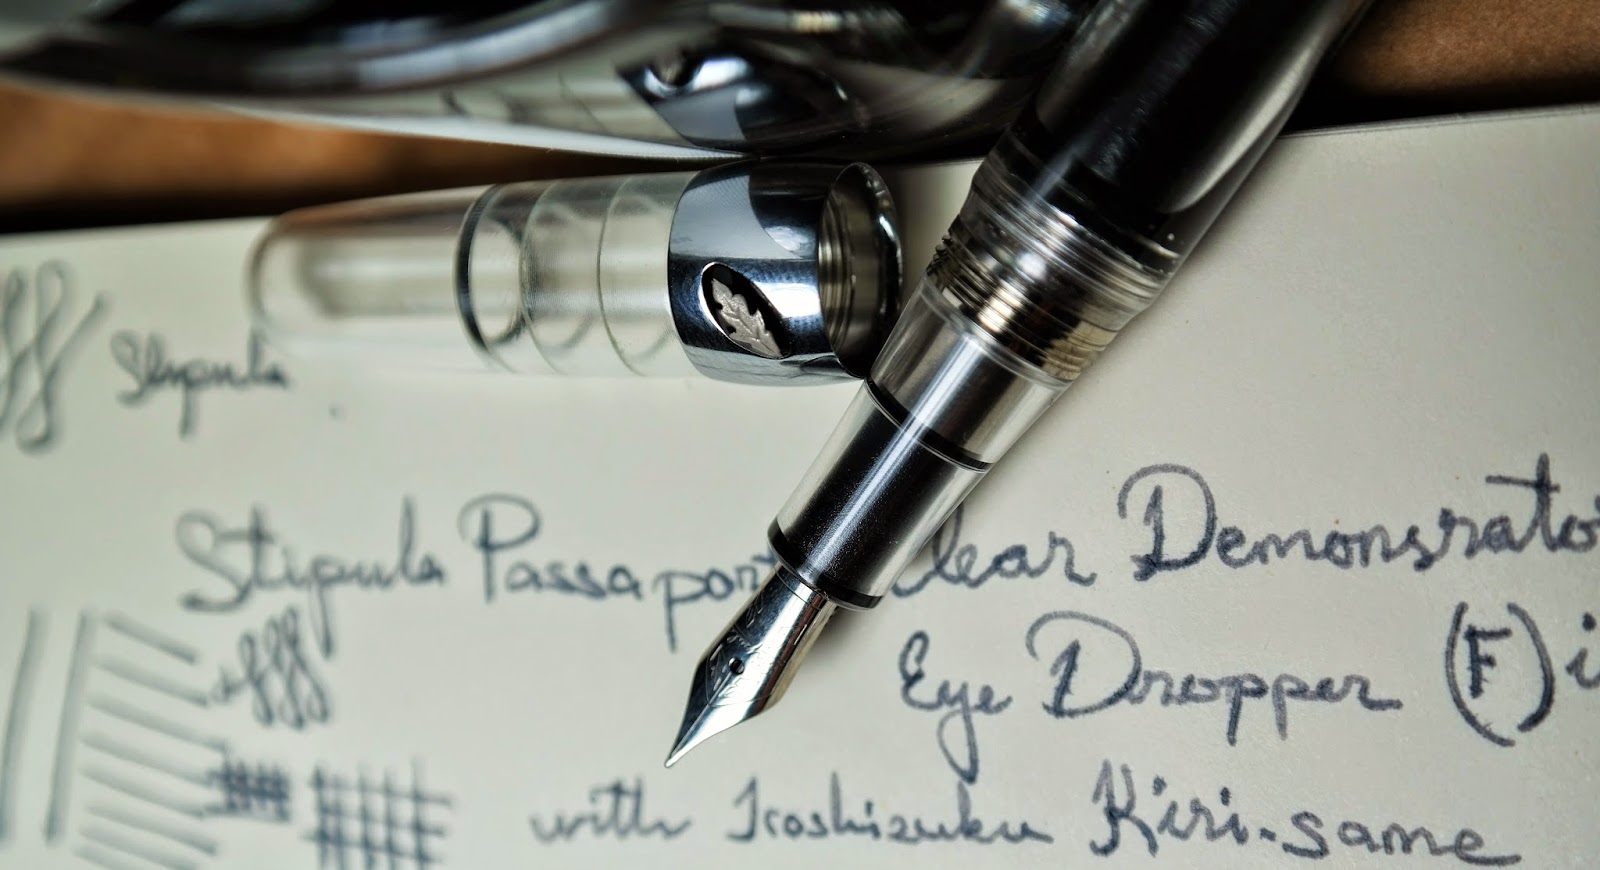 Stipula
Stipula Passaport Clear Demonsrato
Eye Dropper (F) i
with Iroshizuku Kiri-same